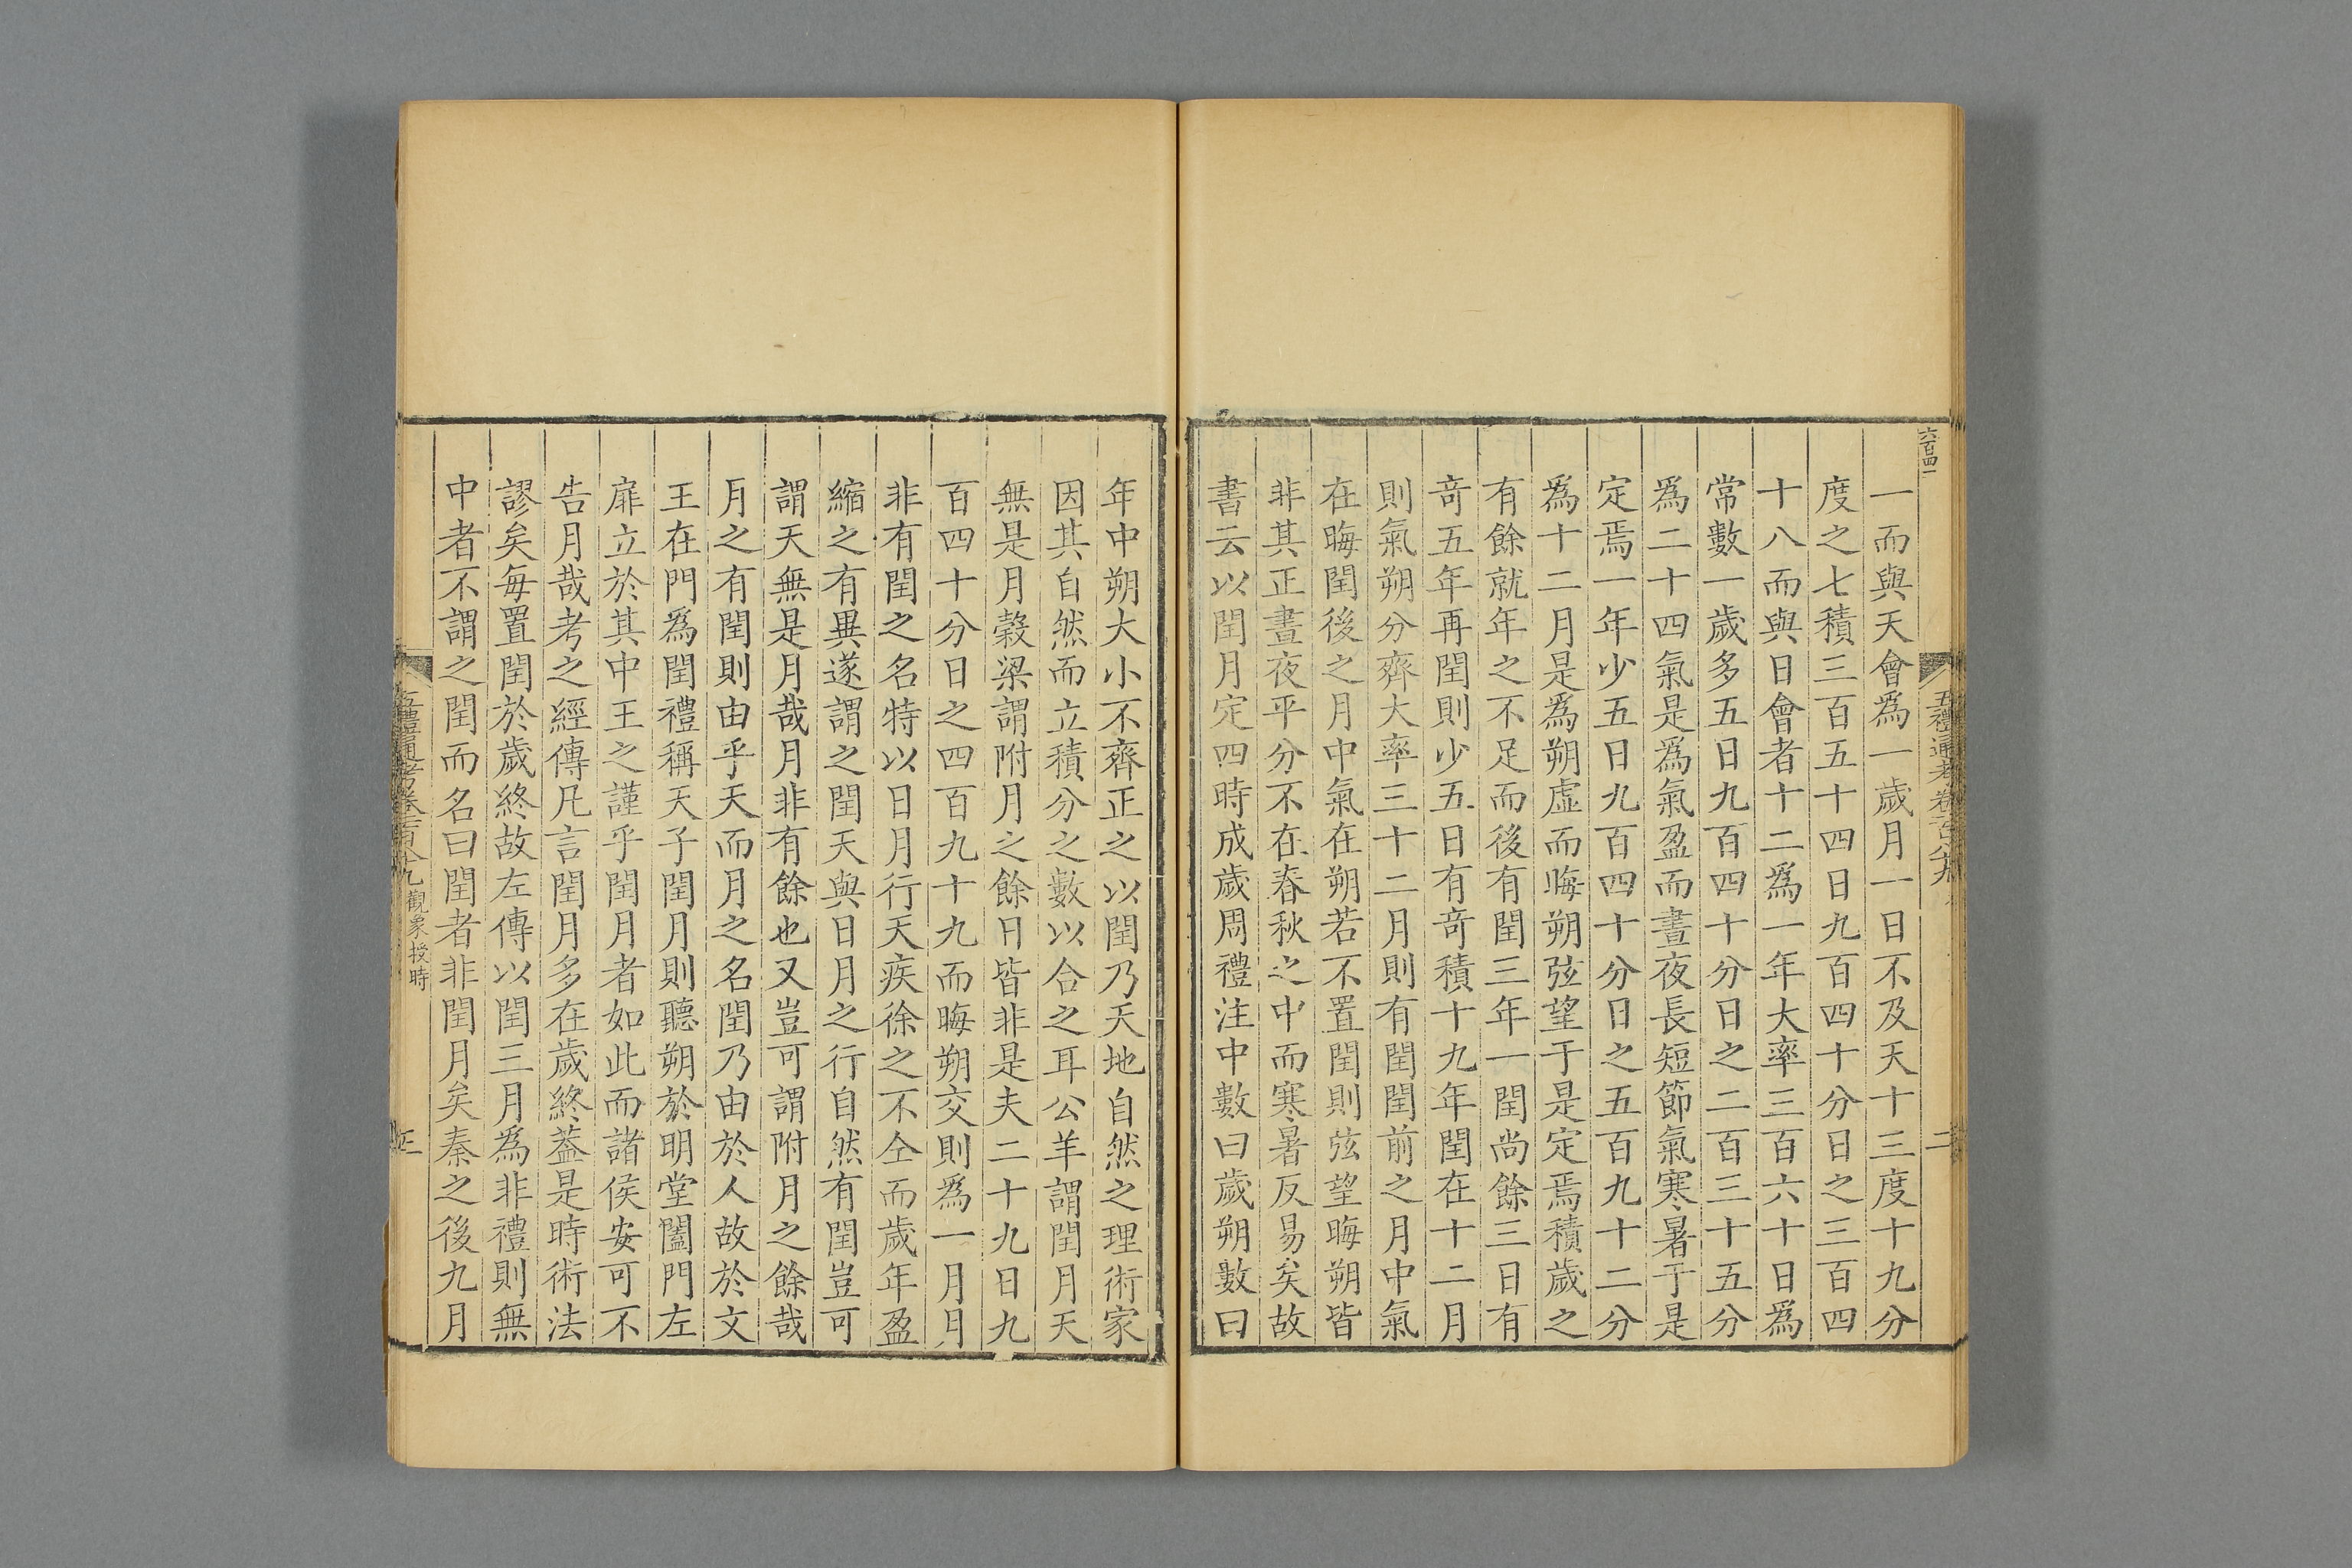 六百四一
五禮通考卷一百八十九
二
一而與天會爲一歲月一日不及天十三度十九分
度之七積三百五十四日九百四十分日之三百四
十八而與日會者十二爲一年大率三百六十日爲
常數一歲多五日九百四十分日之二百三十五分
爲二十四氣是爲氣盈而晝夜長短節氣寒暑于是
定焉一年少五日九百四十分日之五百九十二分
爲十二月是爲朔虛而晦朔弦望于是定焉積歲之
有餘就年之不足而後有閏三年一閏尚餘三日有
奇五年再閏則少五日有奇積十九年閏在十二月
則氣朔分齊大率三十二月則有閏閏前之月中氣
在晦閏後之月中氣在朔若不置閏則弦望晦朔皆
非其正晝夜平分不在春秋之中而寒暑反易矣故
書云以閏月定四時成歲周禮注中數曰歲朔數曰
年中朔大小不齊正之以閏乃天地自然之理術家
因其自然而立積分之數以合之耳公羊謂閏月天
無是月穀梁謂附月之餘日皆非是夫二十九日九
百四十分日之四百九十九而晦朔交則爲一月月
非有閏之名特以日月行天疾徐之不仝而歲年盈
縮之有異遂謂之閏天與日月之行自然有閏豈可
謂天無是月哉月非有餘也又豈可謂附月之餘哉
月之有閏則由乎天而月之名閏乃由於人故於文
王在門爲閏禮稱天子閏月則聽朔於明堂闔門左
扉立於其中王之謹乎閏月者如此而諸侯安可不
告月哉考之經傳凡言閏月多在歲終蓋是時術法
謬矣每置閏於歲終故左傳以閏三月爲非禮則無
中者不謂之閏而名曰閏者非閏月矣秦之後九月
五禮通考卷一百八十九 觀象授時